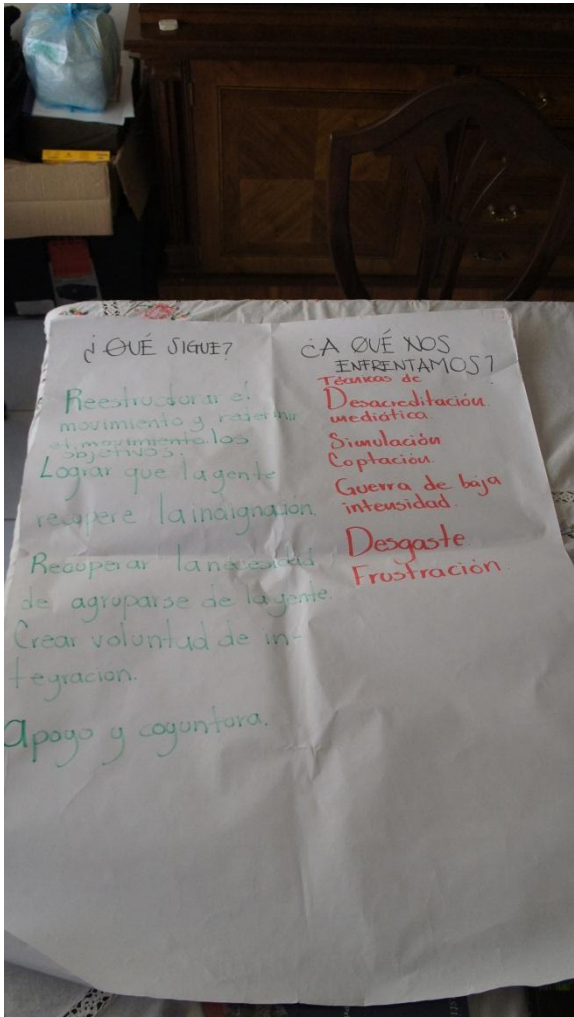 ¿QUÉ SIGUE?
Reestructurar el
movimiento y redefinir
el movimiento los
objetivos.
Lograr que la gente
recupere la indignación.
Recuperar la necesidad
de agruparse de la gente.
Crear voluntud de in-
tegración.
Apoyo y coyuntura.
¿A QUÉ NOS
ENFRENTAMOS?
Técnicas de
Desacreditación
mediática.
Simulación
Coptación.
Guerra de baja
intensidad.
Desgaste
Frustración